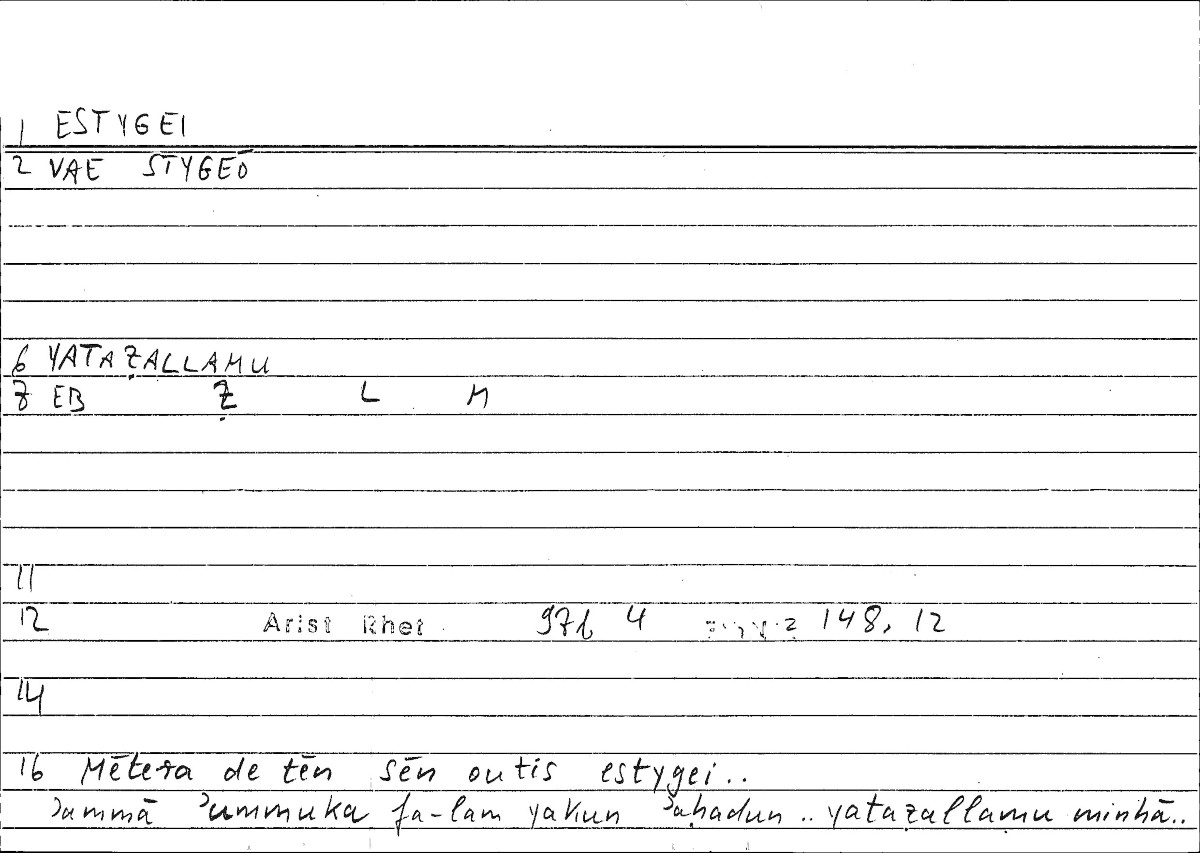 1 ESTYGEI
2 VAE STYGEŌ
6 YATAẒALLAMU
7 EB Ẓ L M
11
12 Arist Rhet 97b 4 148, 12
14
16 Mētera de tēn sēn outis estygei..
ʾammā ʾummuka fa-lam yakun ʾaḥadun .. yataẓallamu minhā..